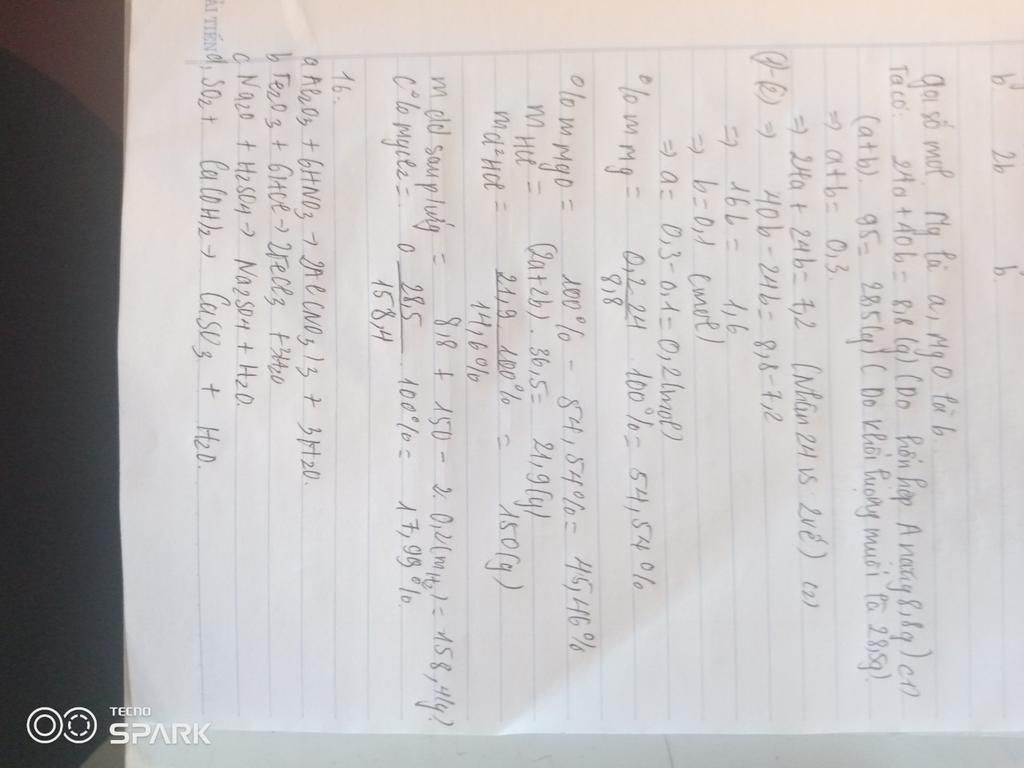 b 2b b.
gọi số mol Mg là a, MgO là b.
Ta có: 24a + 40b = 8,8 (g) (Do hỗn hợp A nặng 8,8g) (1)
(a+b). 95 = 28,5(g) (Do khối lượng muối là 28,5g).
=> a+b = 0,3.
=> 24a + 24b = 7,2 (Nhân 24 vs 2 vế) (2)
(1)-(2) => 40b - 24b = 8,8 - 7,2
=> 16b = 1,6
=> b = 0,1 (mol)
=> a = 0,3 - 0,1 = 0,2 (mol)
% m Mg = 0,2.24 / 8,8 . 100% = 54,54%
% m MgO = 100% - 54,54% = 45,46%
m HCl = (2a+2b). 36,5 = 21,9(g)
m HCl = 21,9.100% / 14,6% = 150(g)
m dd sau p/ứng = 8,8 + 150 - 2.0,2(mH2) = 158,4(g)
C% MgCl2 = 28,5 / 158,4 . 100% = 17,99%.
16.
a Al2O3 + 6HNO3 → 2Al(NO3)3 + 3H2O.
b Fe2O3 + 6HCl → 2FeCl3 + 3H2O
c Na2O + H2SO4 → Na2SO4 + H2O.
d, SO2 + Ca(OH)2 → CaSO3 + H2O.
ẢI TIẾN
TECNO
SPARK